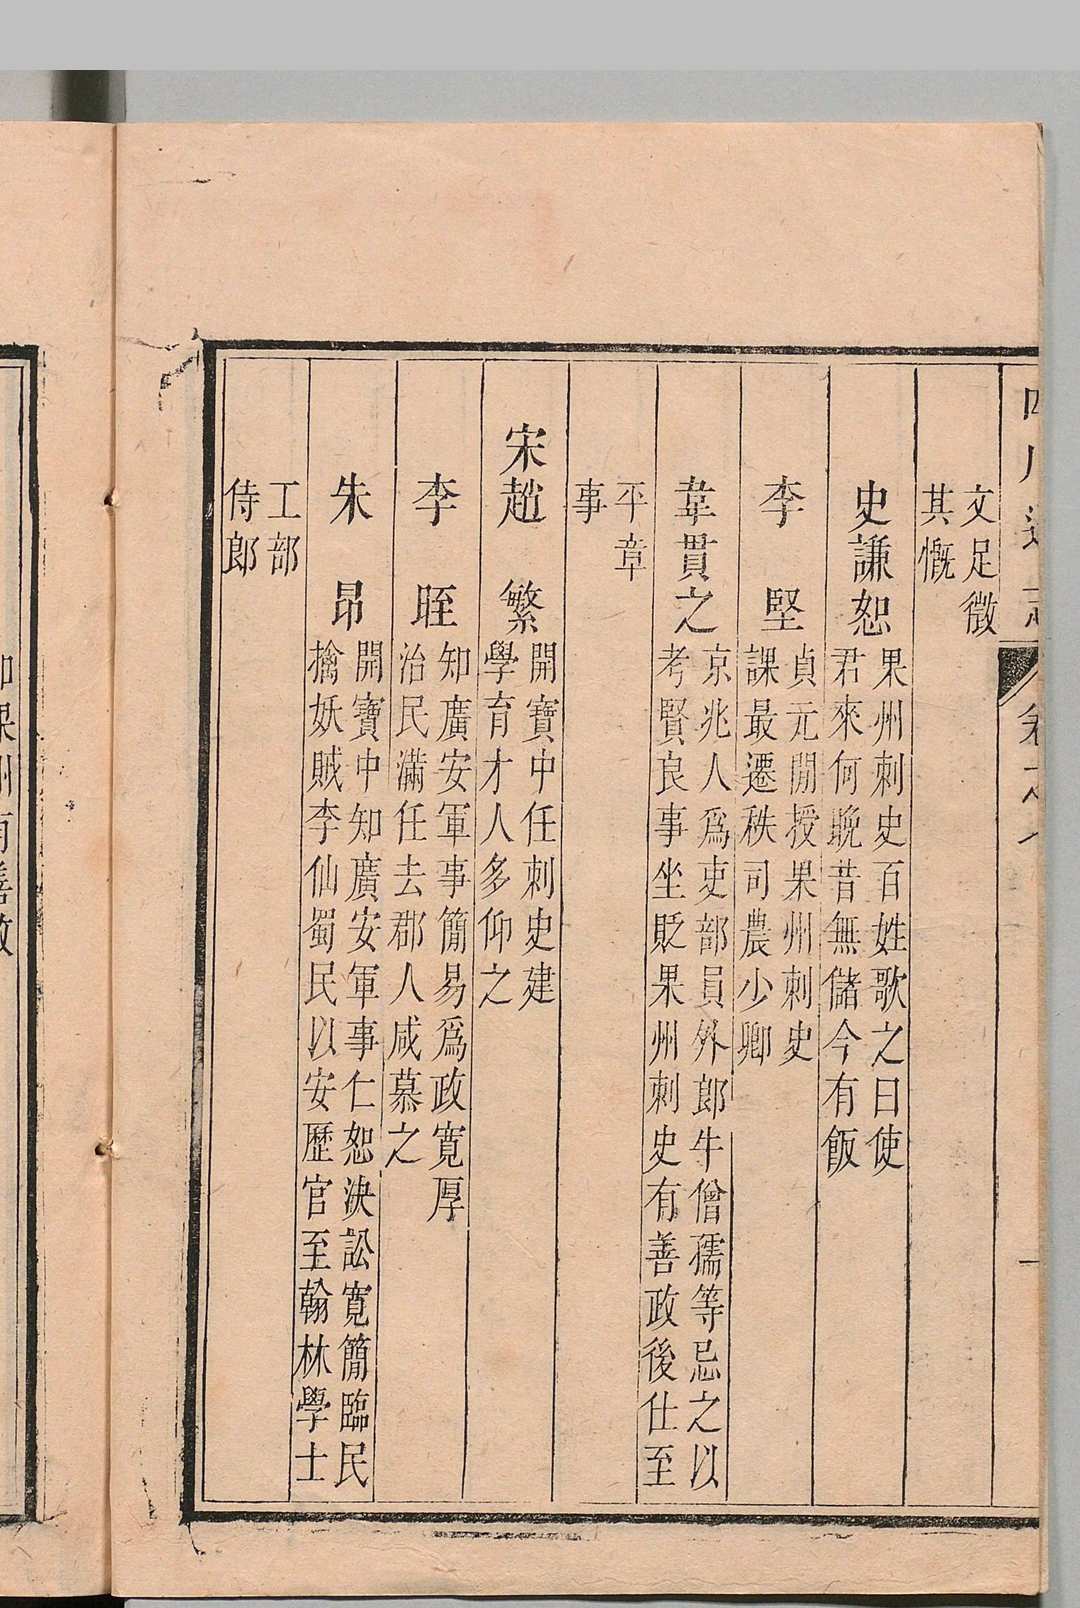 四川通志
卷之八
文足徵
其慨
史謙恕
果州刺史百姓歌之曰使
君來何晚昔無儲今有飯
李堅
貞元閒授果州刺史
課最遷秩司農少卿
韋貫之
京兆人爲吏部員外郎牛僧孺等忌之以
考賢良事坐貶果州刺史有善政後仕至
平章
事
宋趙繁
開寶中任刺史建
學育才人多仰之
李眰
知廣安軍事簡易爲政寬厚
治民滿任去郡人咸慕之
朱昂
開寶中知廣安軍事仁恕決訟寬簡臨民
擒妖賊李仙蜀民以安歷官至翰林學士
工部
侍郎